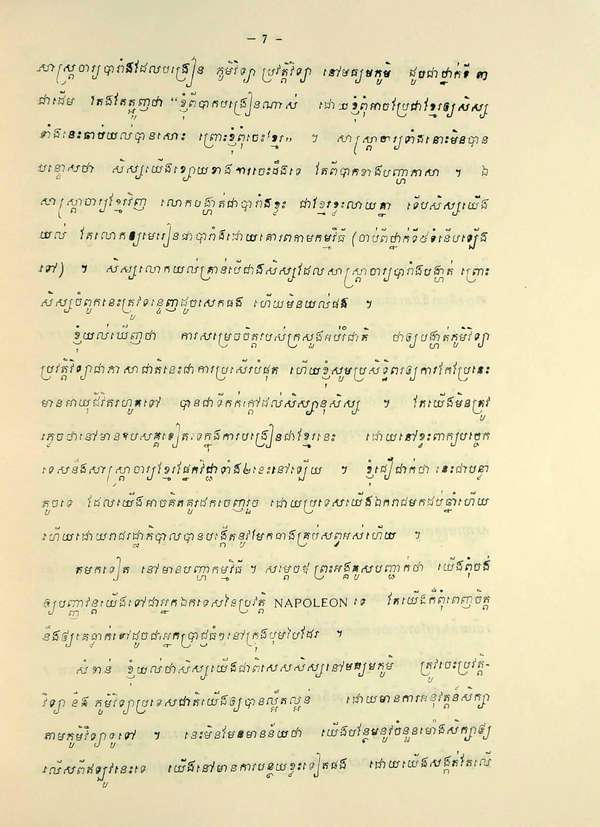 - 7 -
សាស្ត្រាចារ្យបារាំងដែលបង្រៀន ភូមិវិទ្យា ប្រវត្តិវិទ្យា នៅមធ្យមភូមិ ដូចជាថ្នាក់ទី ៣
ជាដើម តែងតែត្អូញថា "ខ្ញុំពិបាកបង្រៀនណាស់ ដោយខ្ញុំពុំអាចប្រែជាខ្មែរឲ្យសិស្ស
ទាំងនេះឆាប់យល់បានសោះ ព្រោះខ្ញុំពុំចេះខ្មែរ" ។ សាស្ត្រាចារ្យទាំងនោះមិនបាន
បន្ទោសថា សិស្សយើងខ្សោយខាងការចេះដឹងទេ តែពិបាកខាងបញ្ហាភាសា ។ ឯ
សាស្ត្រាចារ្យខ្មែរវិញ លោកបង្ហាត់ជាបារាំងខ្លះ ជាខ្មែរខ្លះលាយគ្នា ទើបសិស្សយើង
យល់ តែលោកឲ្យមេរៀនជាបារាំងដោយគោរពតាមកម្មវិធី (ចាប់ពីថ្នាក់ទី៥ទំនើបឡើង
ទៅ) ។ សិស្សលោកយល់គ្រាន់បើជាងសិស្សដែលសាស្ត្រាចារ្យបារាំងបង្ហាត់ ព្រោះ
សិស្សចំពូកនេះត្រូវទន្ទេញដូចសេកផង ហើយមិនយល់ផង ។
ខ្ញុំយល់ឃើញថា ការសម្រេចចិត្តរបស់ក្រសួងអប់រំជាតិ ថាឲ្យបង្ហាត់ភូមិវិទ្យា
ប្រវត្តិវិទ្យាជាភាសាជាតិនេះជាការប្រសើរបំផុត ហើយខ្ញុំសូមប្រសិទ្ធិពរឲ្យការកែប្រែនេះ
មានអាយុជីវិតរហូតទៅ បានជាទឹកក់ក្តៅដល់សិស្សានុសិស្ស ។ តែយើងមិនត្រូវ
ភ្លេចថានៅមានឧបសគ្គទៀតទេក្នុងការបង្រៀនជាខ្មែរនេះ ដោយនៅខ្វះពាក្យបច្ចេក
ទេសនិងសាស្ត្រាចារ្យខ្មែរផ្នែកវិជ្ជាទាំង២នេះនៅឡើយ ។ ខ្ញុំជឿជាក់ថា នេះជាបន្ទា
តូចទេ ដែលយើងអាចគិតគូរដកចេញរួច ដោយប្រទេសយើងឯករាជមកដប់ឆ្នាំហើយ
ហើយដោយរាជរដ្ឋាភិបាលបានបង្កើតនូវមែកធាងគ្រប់សព្វអស់ហើយ ។
តមកទៀត នៅមានបញ្ហាកម្មវិធី ។ សម្តេចឪ ព្រះអង្គគូសបញ្ជាក់ថា យើងពុំចង់
ឲ្យបញ្ញាវន្តយើងទៅជាអ្នកឯកទេសនៃប្រវត្តិ NAPOLEON ទេ តែយើងក៏ពុំពេញចិត្ត
នឹងឲ្យគេធ្លាក់ទៅដូចជាអ្នកប្រាជ្ញធំៗនៅក្រុងបុមបៃដែរ ។
សំខាន់ ខ្ញុំយល់ថាសិស្សយើងជាពិសេសសិស្សនៅមធ្យមភូមិ ត្រូវចេះប្រវត្តិ-
វិទ្យា និង ភូមិវិទ្យាប្រទេសជាតិយើងឲ្យបានល្អិតល្អន់ ដោយមានការអនុវត្តន៍សិក្សា
តាមភូមិវិទ្យាទូទៅ ។ នេះមិនមែនមានន័យថា យើងបន្ថែមនូវចំនួនម៉ោងសិក្សាឲ្យ
លើសពីឥឡូវនេះទេ យើងនៅមានការបន្ថយខ្លះទៀតផង ដោយយើងសង្កត់តែលើ